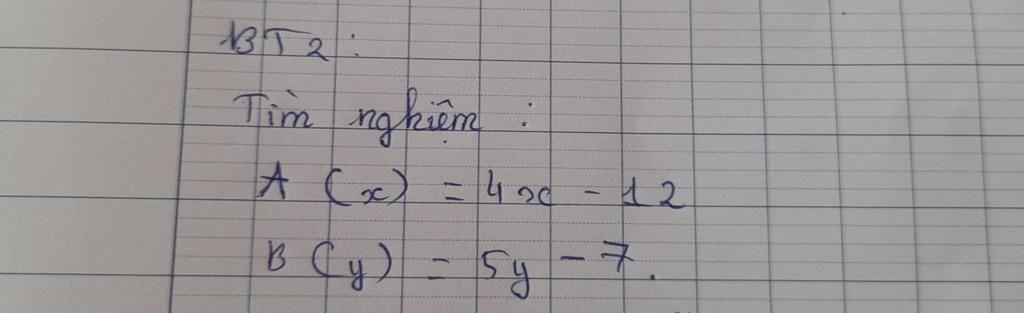 BT2:
Tìm nghiệm :
A (x) = 4x - 12
B (y) = 5y - 7.